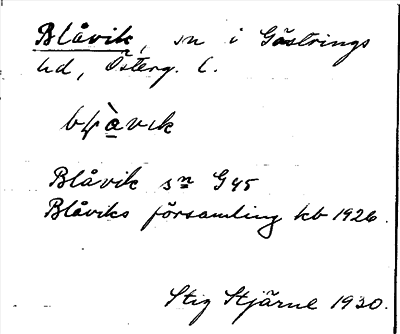 Blåvik, sn i Göstrings
hd, Österg. l.
Blåvik sn G45
Blåviks församling kb 1926.
Stig Stjärne 1930.